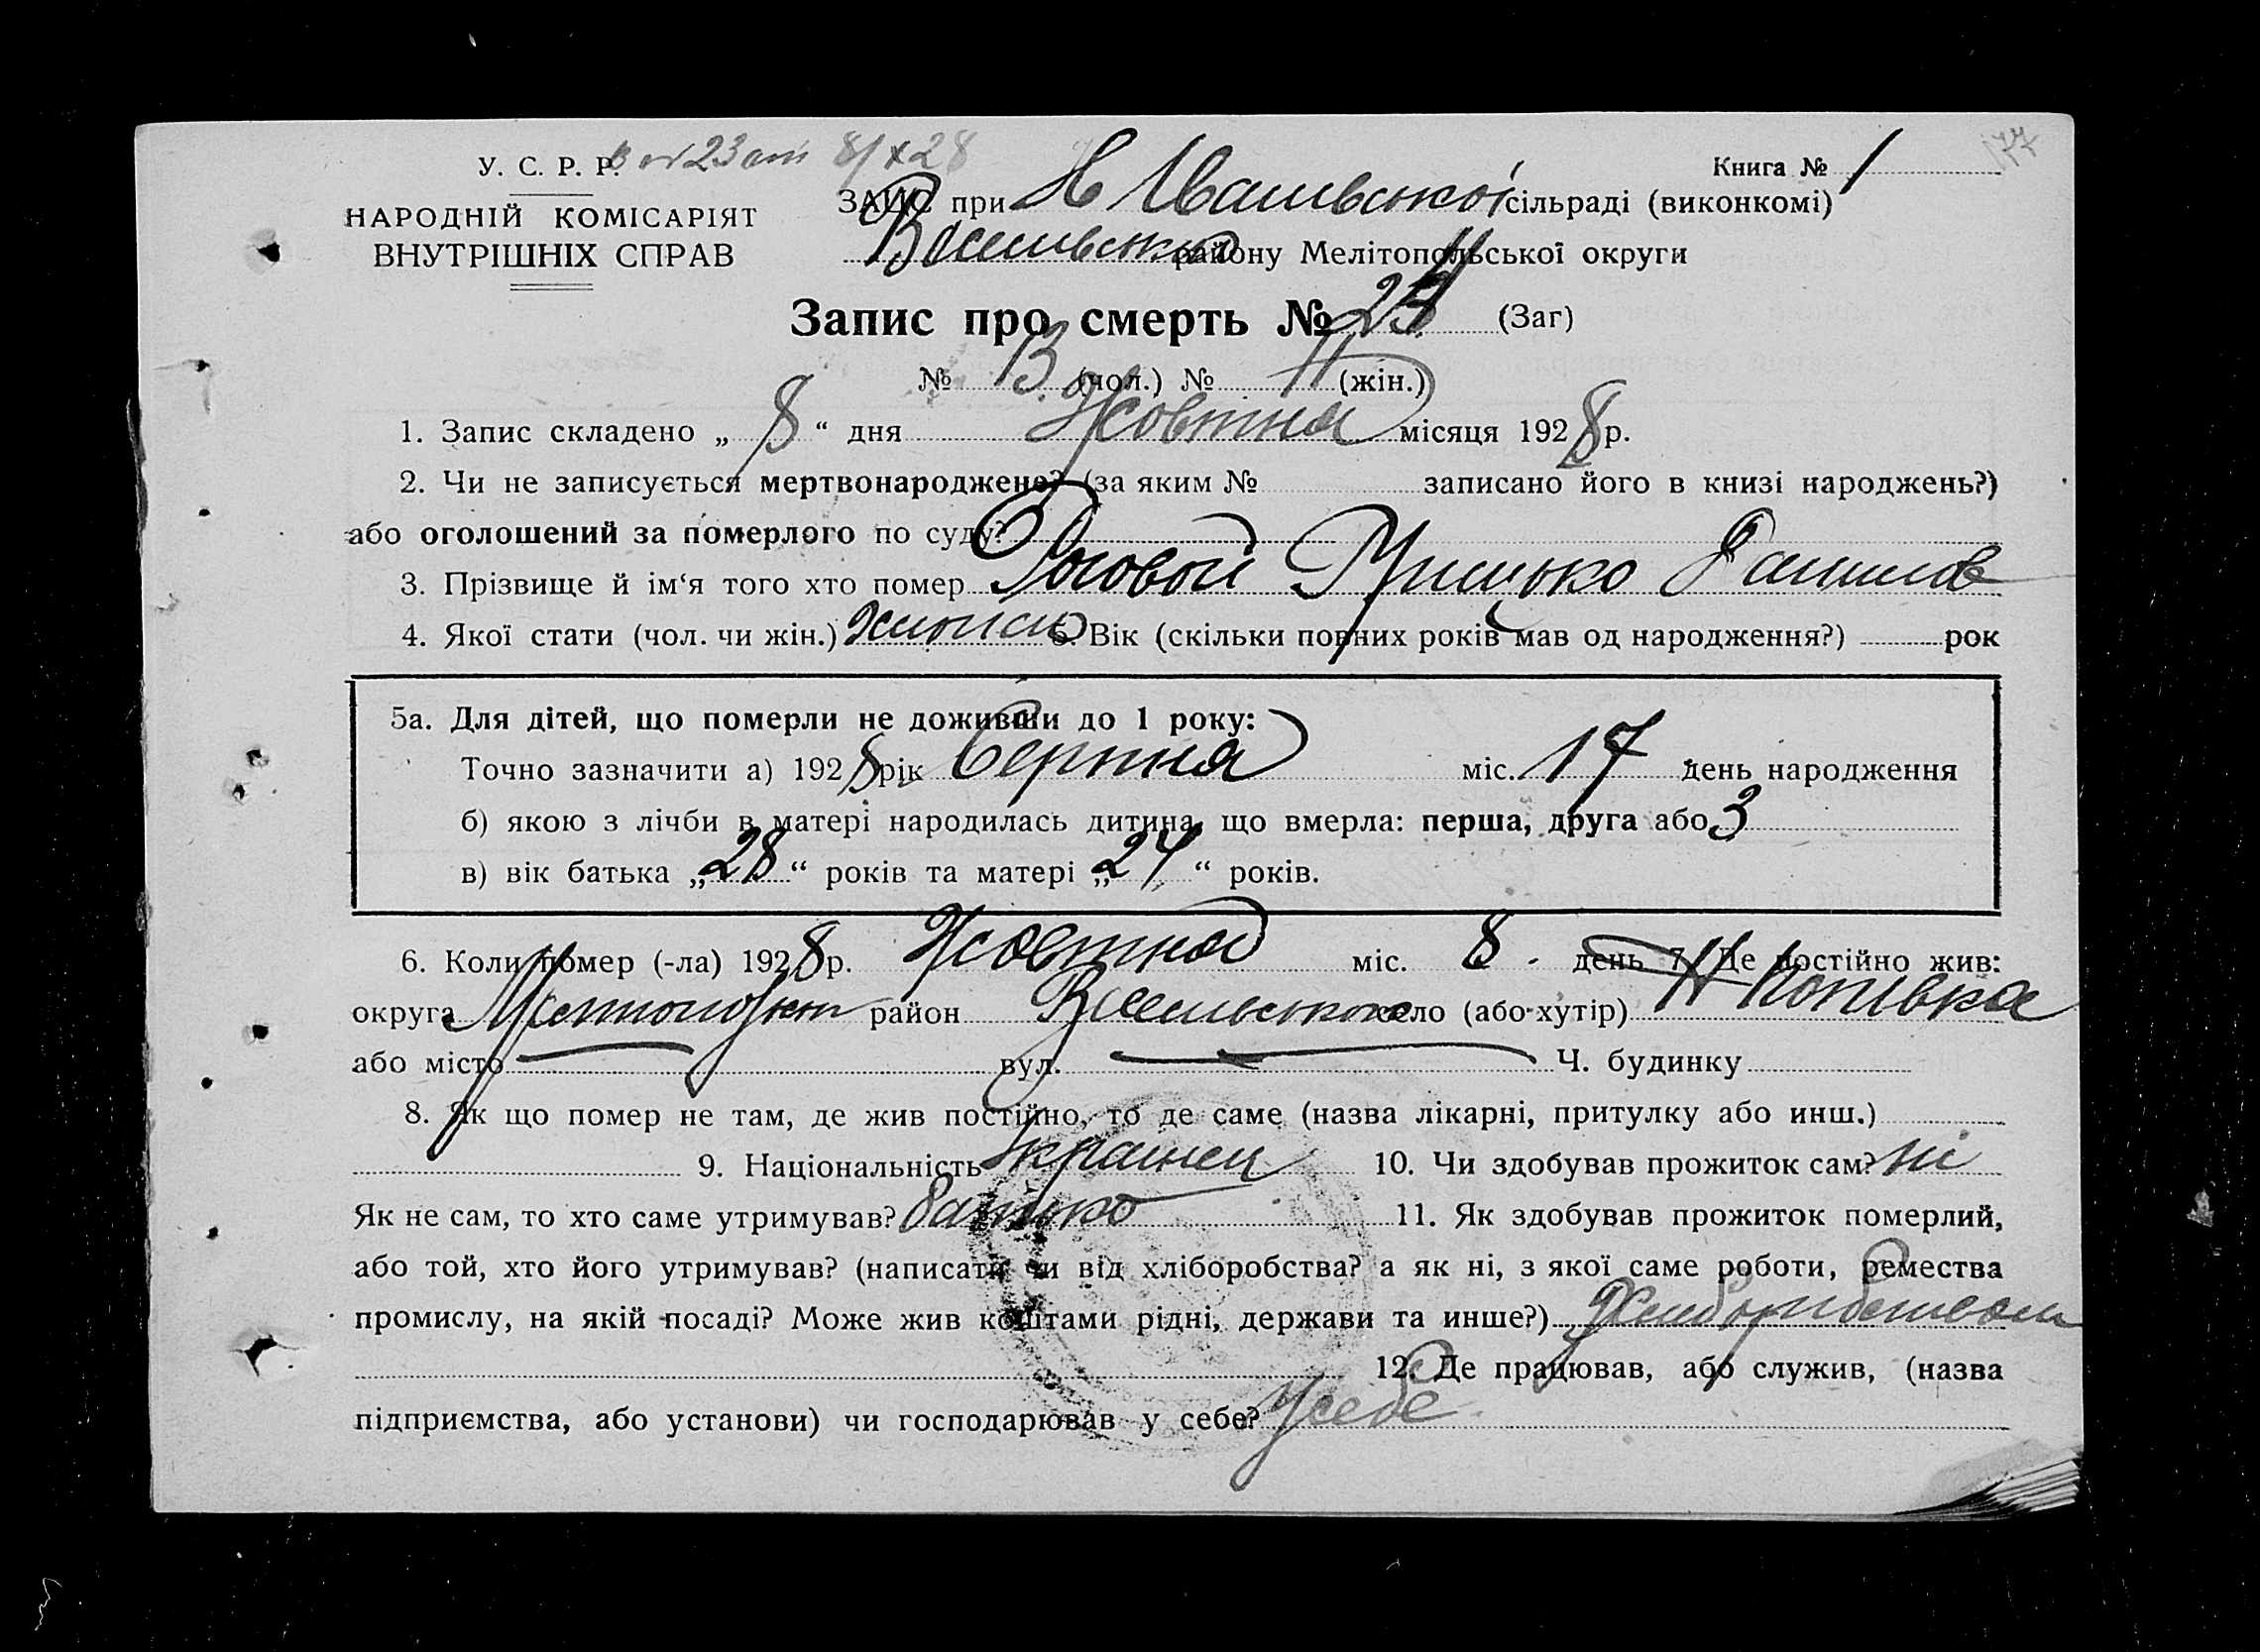 У. С. Р. Р.
8/X 28
Книга № 1
177
НАРОДНІЙ КОМІСАРІЯТ
ВНУТРІШНІХ СПРАВ
ЗАПИС при сільраді (виконкомі)
району Мелітопольської округи
Запис про смерть № (Заг)
№ 13 (чол.) № (жін.)
1. Запис складено „ 8 “ дня Жовтня місяця 1928 р.
2. Чи не записується мертвонароджене? (за яким № записано його в книзі народжень?)
або оголошений за померлого по суду?
3. Прізвище й ім‘я того хто помер Роговой Грицько Данилов
4. Якої стати (чол. чи жін.) хлопись 5. Вік (скільки повних років мав од народження?) рок
5а. Для дітей, що померли не доживши до 1 року:
Точно зазначити а) 1928 рік Серпня міс. 17 день народження
б) якою з лічби в матері народилась дитина, що вмерла: перша, друга або 3
в) вік батька „ 28 “ років та матері „ 24 “ років.
6. Коли помер (-ла) 1928 р. Жовтня міс. 8 день 7. Де постійно жив:
округа район село (або хутір)
або місто — вул. — Ч. будинку
8. Як що помер не там, де жив постійно, то де саме (назва лікарні, притулку або инш.)
9. Національність Украинец 10. Чи здобував прожиток сам? ні
Як не сам, то хто саме утримував? батько 11. Як здобував прожиток померлий,
або той, хто його утримував? (написати чи від хліборобства? а як ні, з якої саме роботи, ремества
промислу, на якій посаді? Може жив коштами рідні, держави та инше?) Хліборобством
12. Де працював, або служив, (назва
підприємства, або установи) чи господарював у себе? У себе